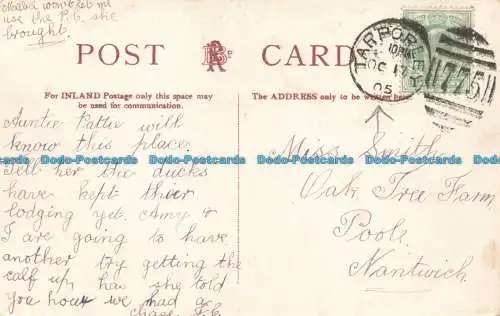 Mabel won't let me
use the P.C. she
brought.
POST CARD
For INLAND Postage only this space may
be used for communication.
The ADDRESS only to be written here.
TARPORLEY
OC 17
05
775
Auntie Pattie will
know this place.
Tell her the ducks
have kept their
lodging yet. Amy &
I are going to have
another try getting the
calf up, has she told
you how we had a
chase.
Miss Smith
Oak Tree Farm
Poole
Nantwich.
Dodo-Postcards Dodo-Postcards Dodo-Postcards Dodo-Postcards Dodo-Postcards